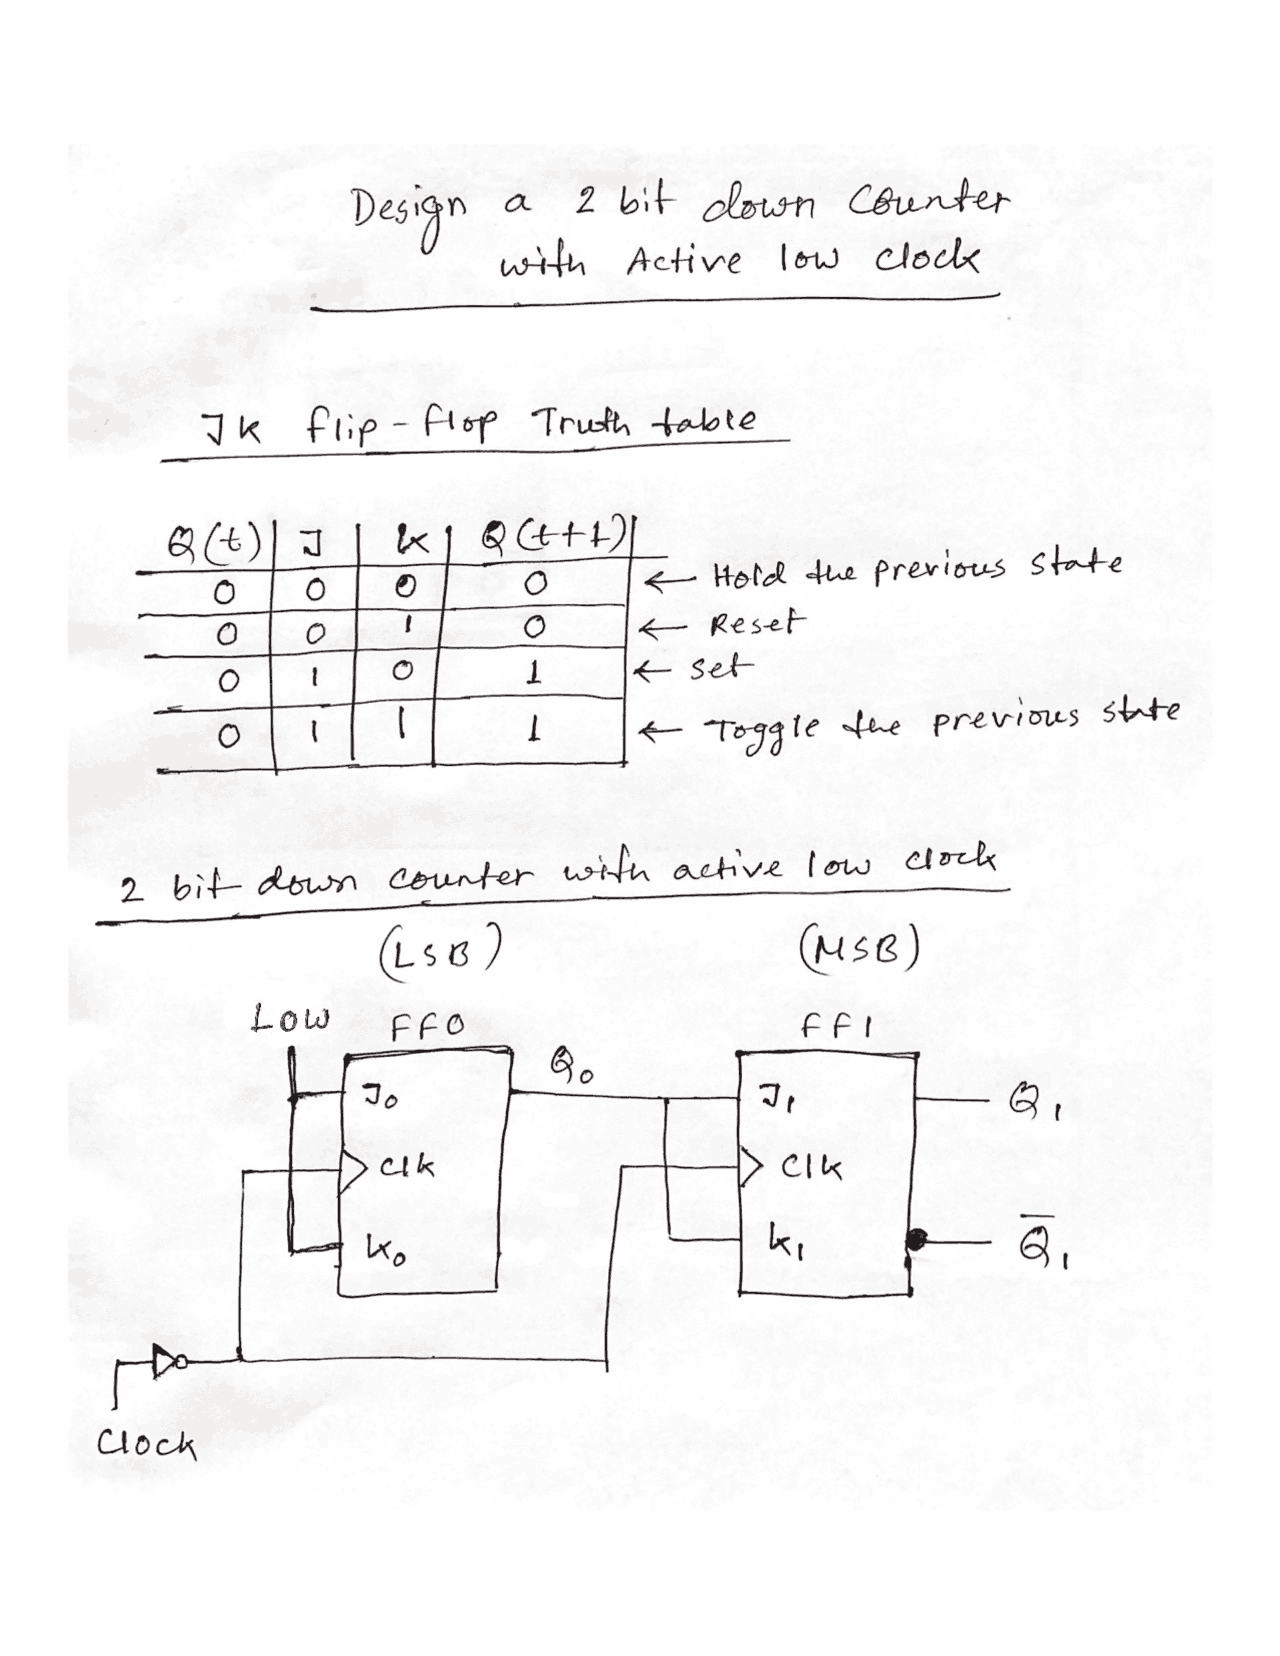 Design a 2 bit down Counter
with Active low clock
JK flip-flop Truth table
Q(t) J K Q(t+1)
0 0 0 0 ← Hold the previous state
0 0 1 0 ← Reset
0 1 0 1 ← Set
0 1 1 1 ← Toggle the previous state
2 bit down counter with active low clock
(LSB) (MSB)
Low FF0 FF1
Q0
J0 J1 Q1
Clk Clk
K0 K1 Q̅1
Clock